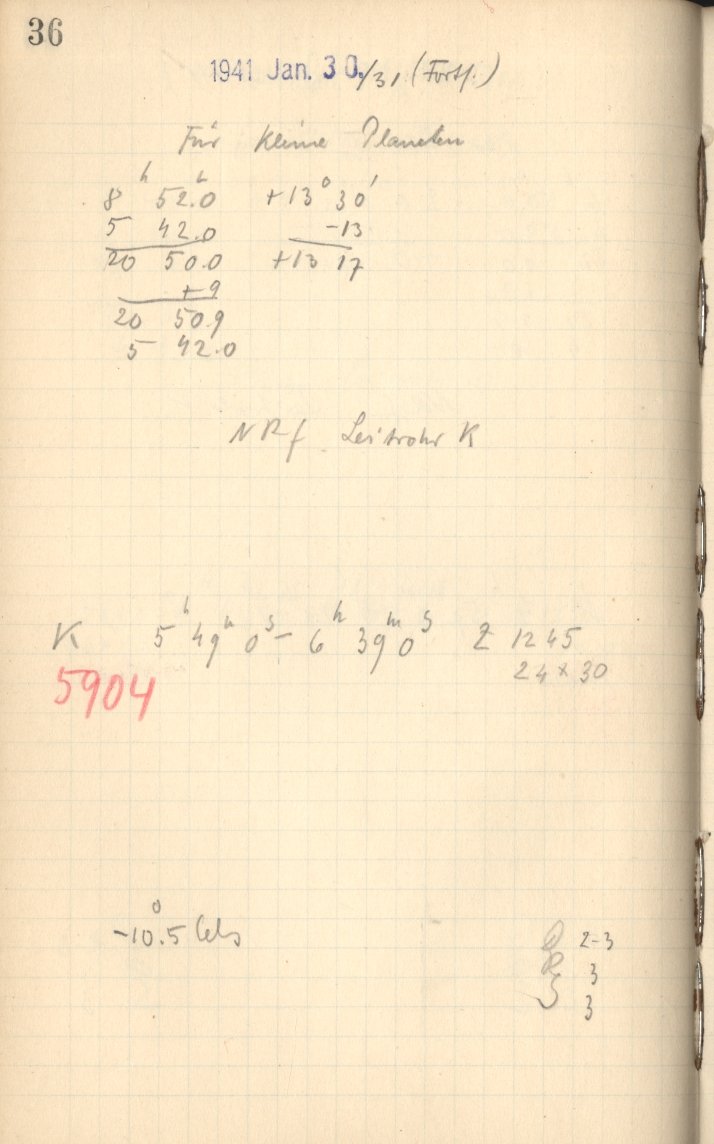 36
1941 Jan. 30./31 (Forts.)
Für kleine Planeten
8ʰ 52.0 +13° 30'
5 42.0 -13
20 50.0 +13 17
+9
20 50.9
5 42.0
NRf Leitrohr K
K 5ʰ 49ᵐ 0ˢ - 6ʰ 39ᵐ 0ˢ Z 1245
24 x 30
5904
-10°.5 Cels
2-3
R 3
S 3